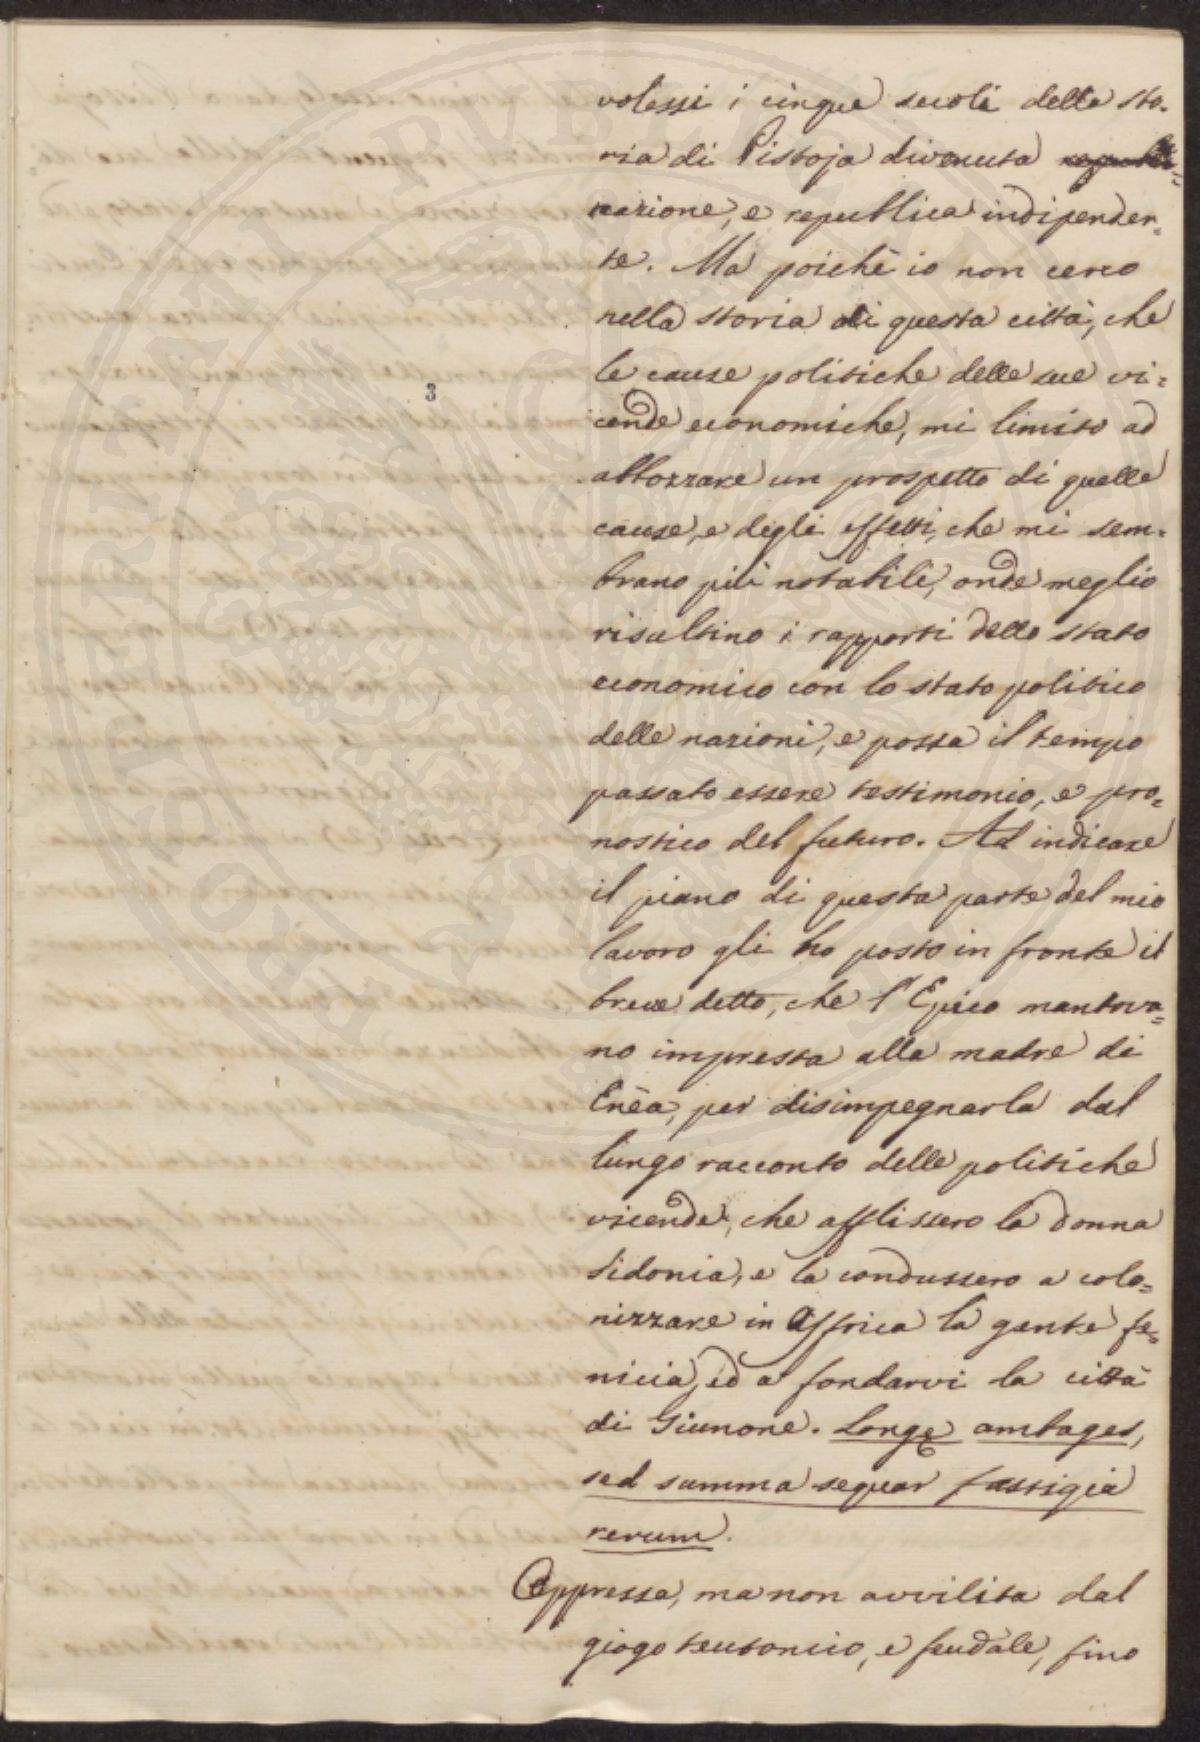 volessi i cinque secoli della sto-
ria di Pistoja divenuta
nazione, e republica indipenden-
te. Ma poichè io non cerco
nella storia di questa città, che
le cause politiche delle sue vi=
3
cende economiche, mi limito ad
abbozzare un prospetto di quelle
cause, e degli effetti, che mi sem-
brano più notabili, onde meglio
risultino i rapporti dello stato
economico con lo stato politico
delle nazioni, e possa il tempo
passato essere testimonio, e pro=
nostico del futuro. Ad indicare
il piano di questa parte del mio
lavoro gli ho posto in fronte il
breve detto, che l'Epico mantova=
no impresta alla madre di
Enèa, per disimpegnarla dal
lungo racconto delle politiche
vicende, che afflissero la donna
Sidonia, e la condussero a colo=
nizzare in Affrica la gente fe=
nicia, ed a fondarvi la città
di Giunone. Longę ambages,
sed summa sequar fastigia
rerum.
Oppressa, ma non avvilita dal
giogo teutonico, e feudale, fino